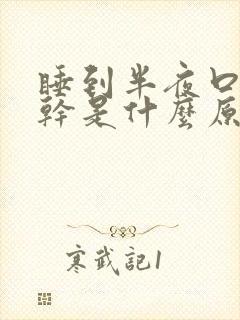 睡到半夜口
幹是什麼原
寒武記1